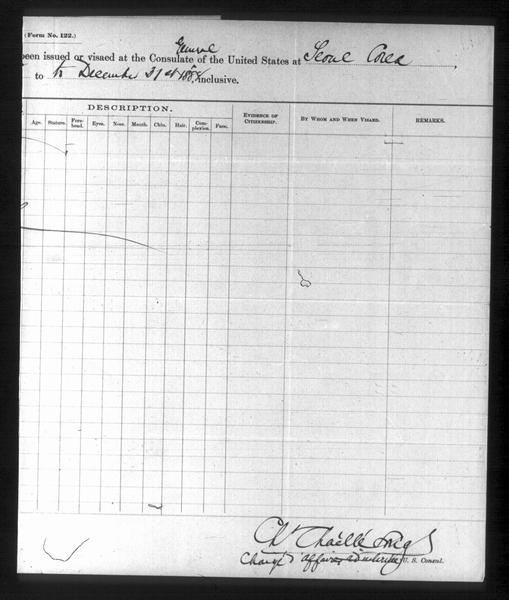 (Form No. 122.)
General
been issued or visaed at the Consulate of the United States at Seoul Corea
to to December 31st 1888, inclusive.
DESCRIPTION.
Age. Stature. Fore-head. Eyes. Nose. Mouth. Chin. Hair. Com-plexion. Face. EVIDENCE OF CITIZENSHIP. BY WHOM AND WHEN VISAED. REMARKS.
Ch Chaillé Long
Chargé d'affaires ad interim U. S. Consul.